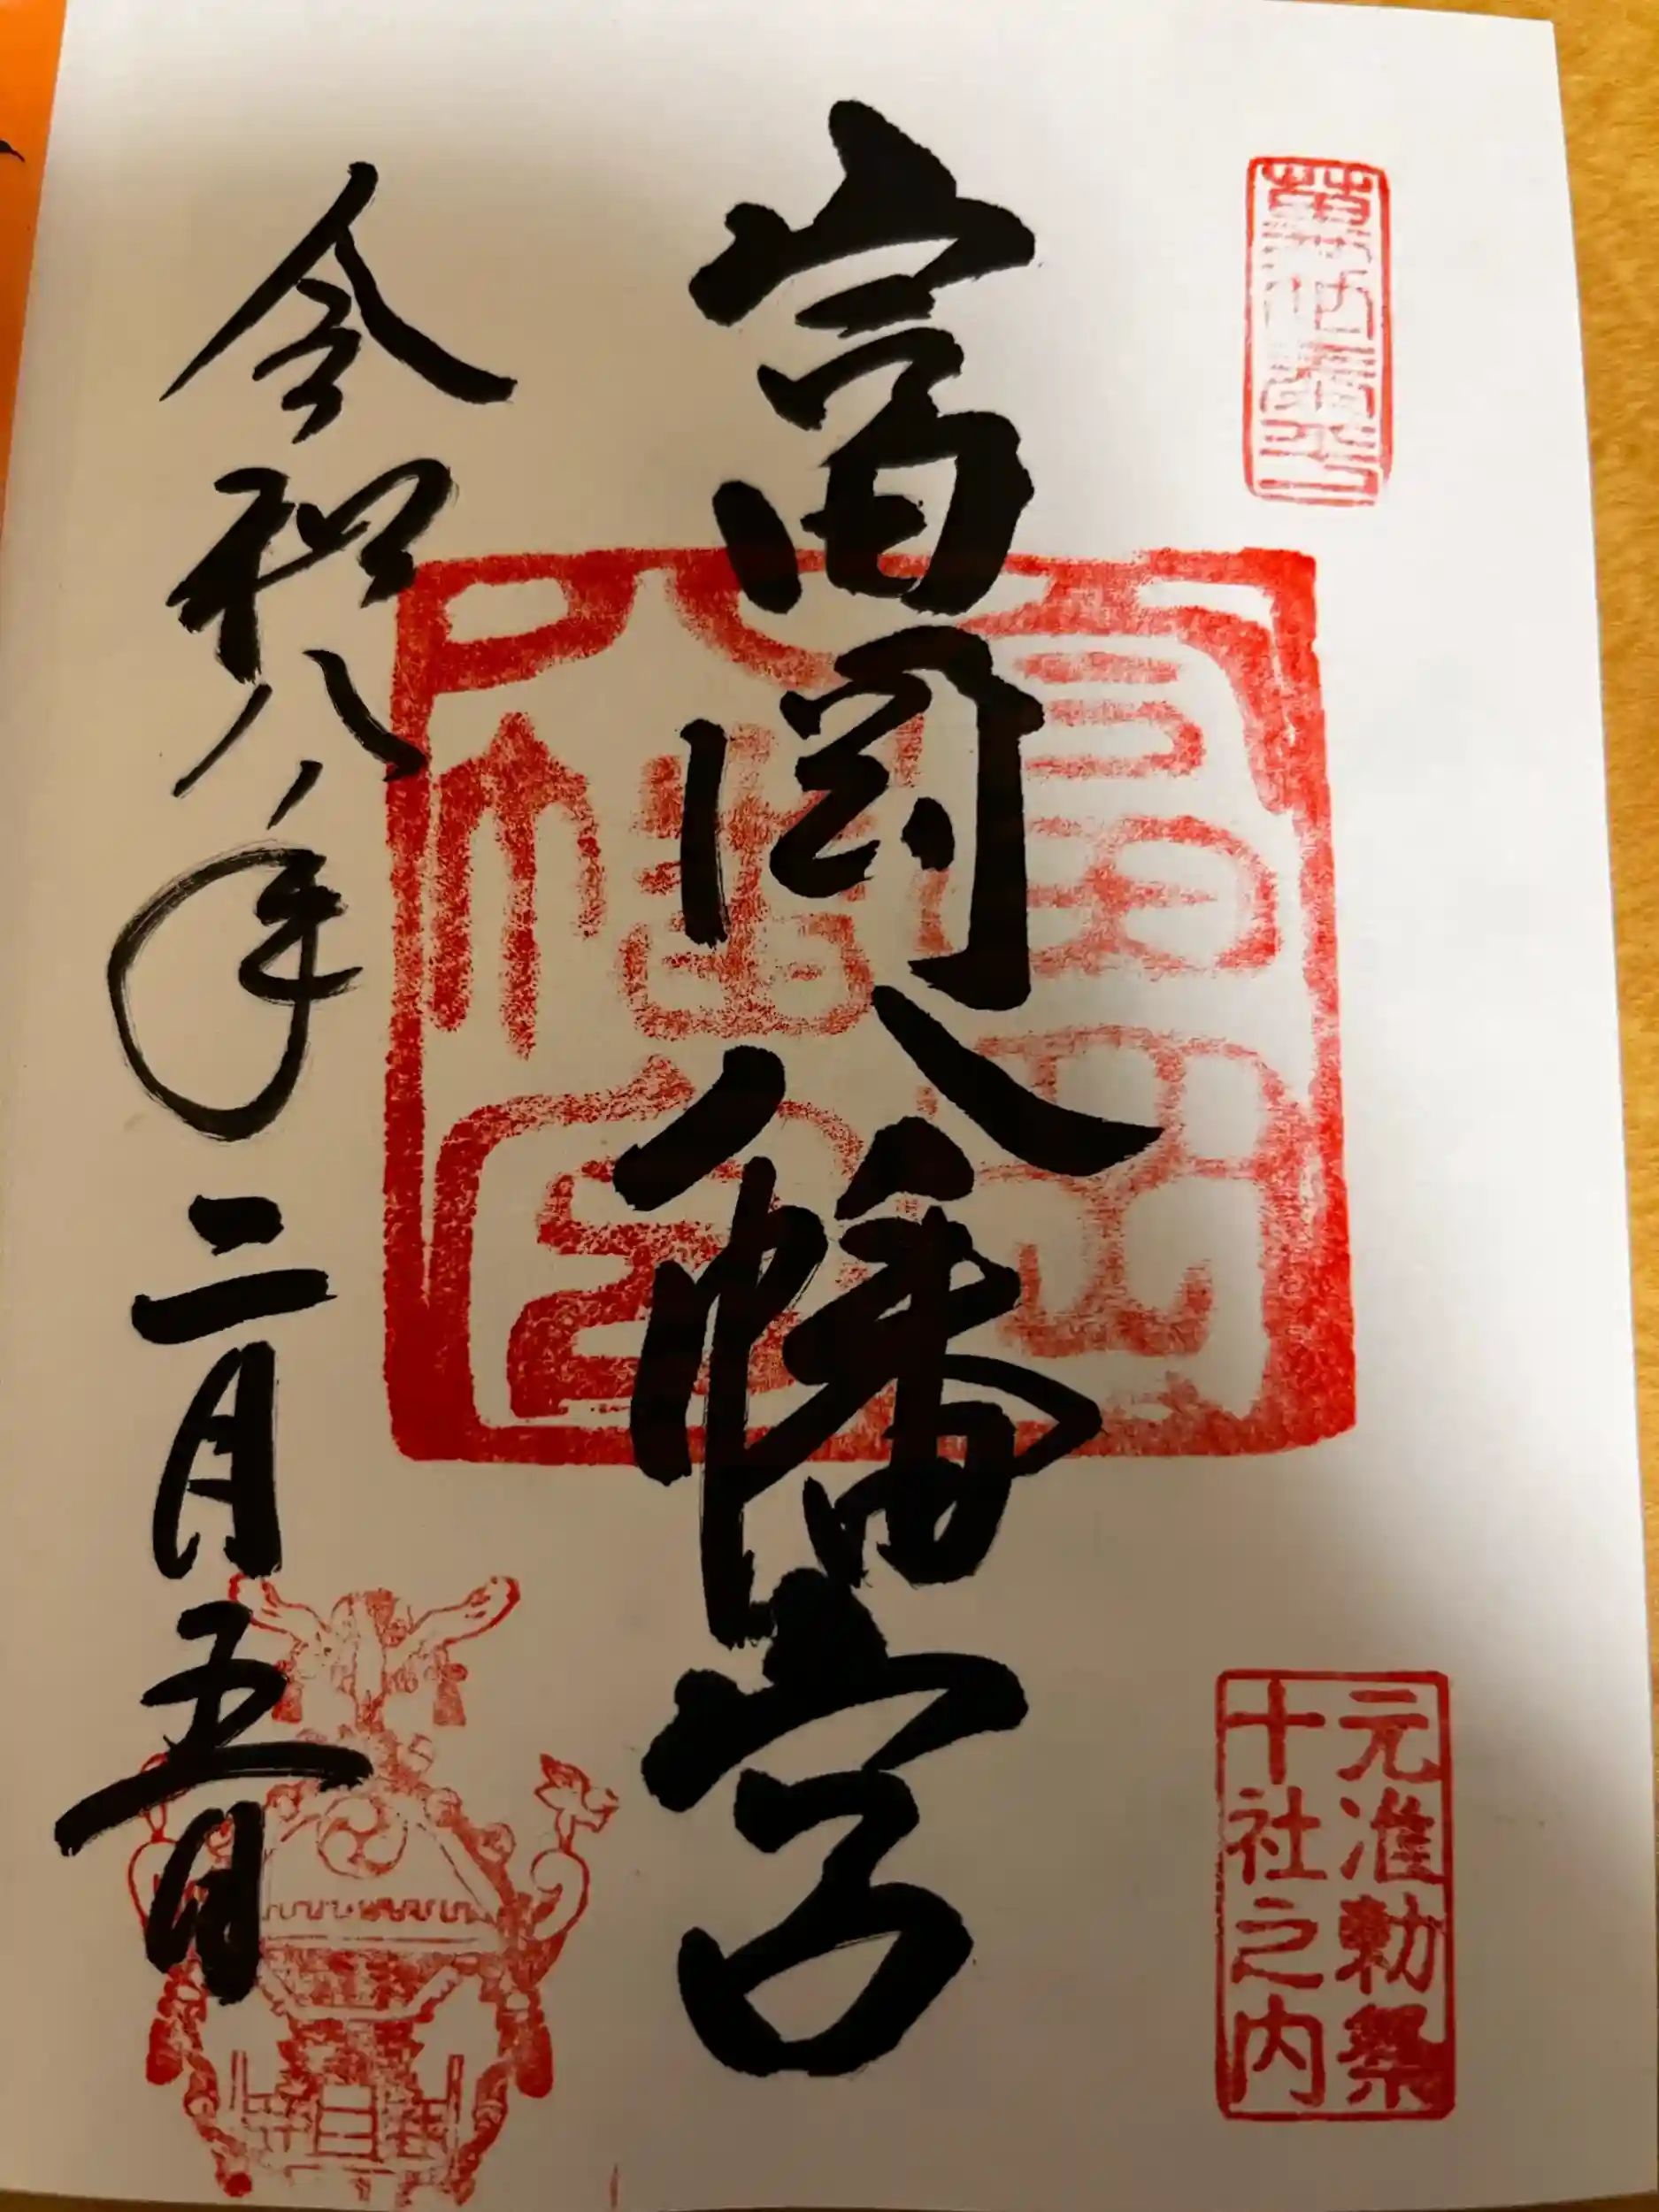 元准勅祭
十社之内
富岡八幡宮
富岡
八幡宮
令和八年二月五日